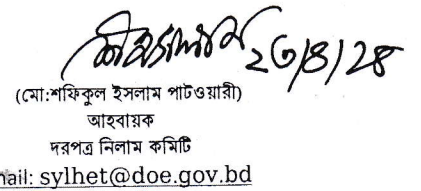 ২৩/৪/২৪
(মো:শফিকুল ইসলাম পাটওয়ারী)
আহবায়ক
দরপত্র নিলাম কমিটি
nail: sylhet@doe.gov.bd